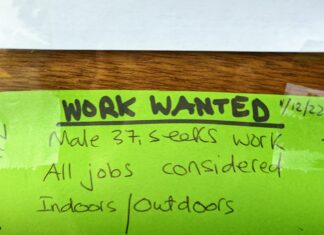 WORK WANTED 1/12/22
Male 37, seeks work
All jobs considered
Indoors/Outdoors